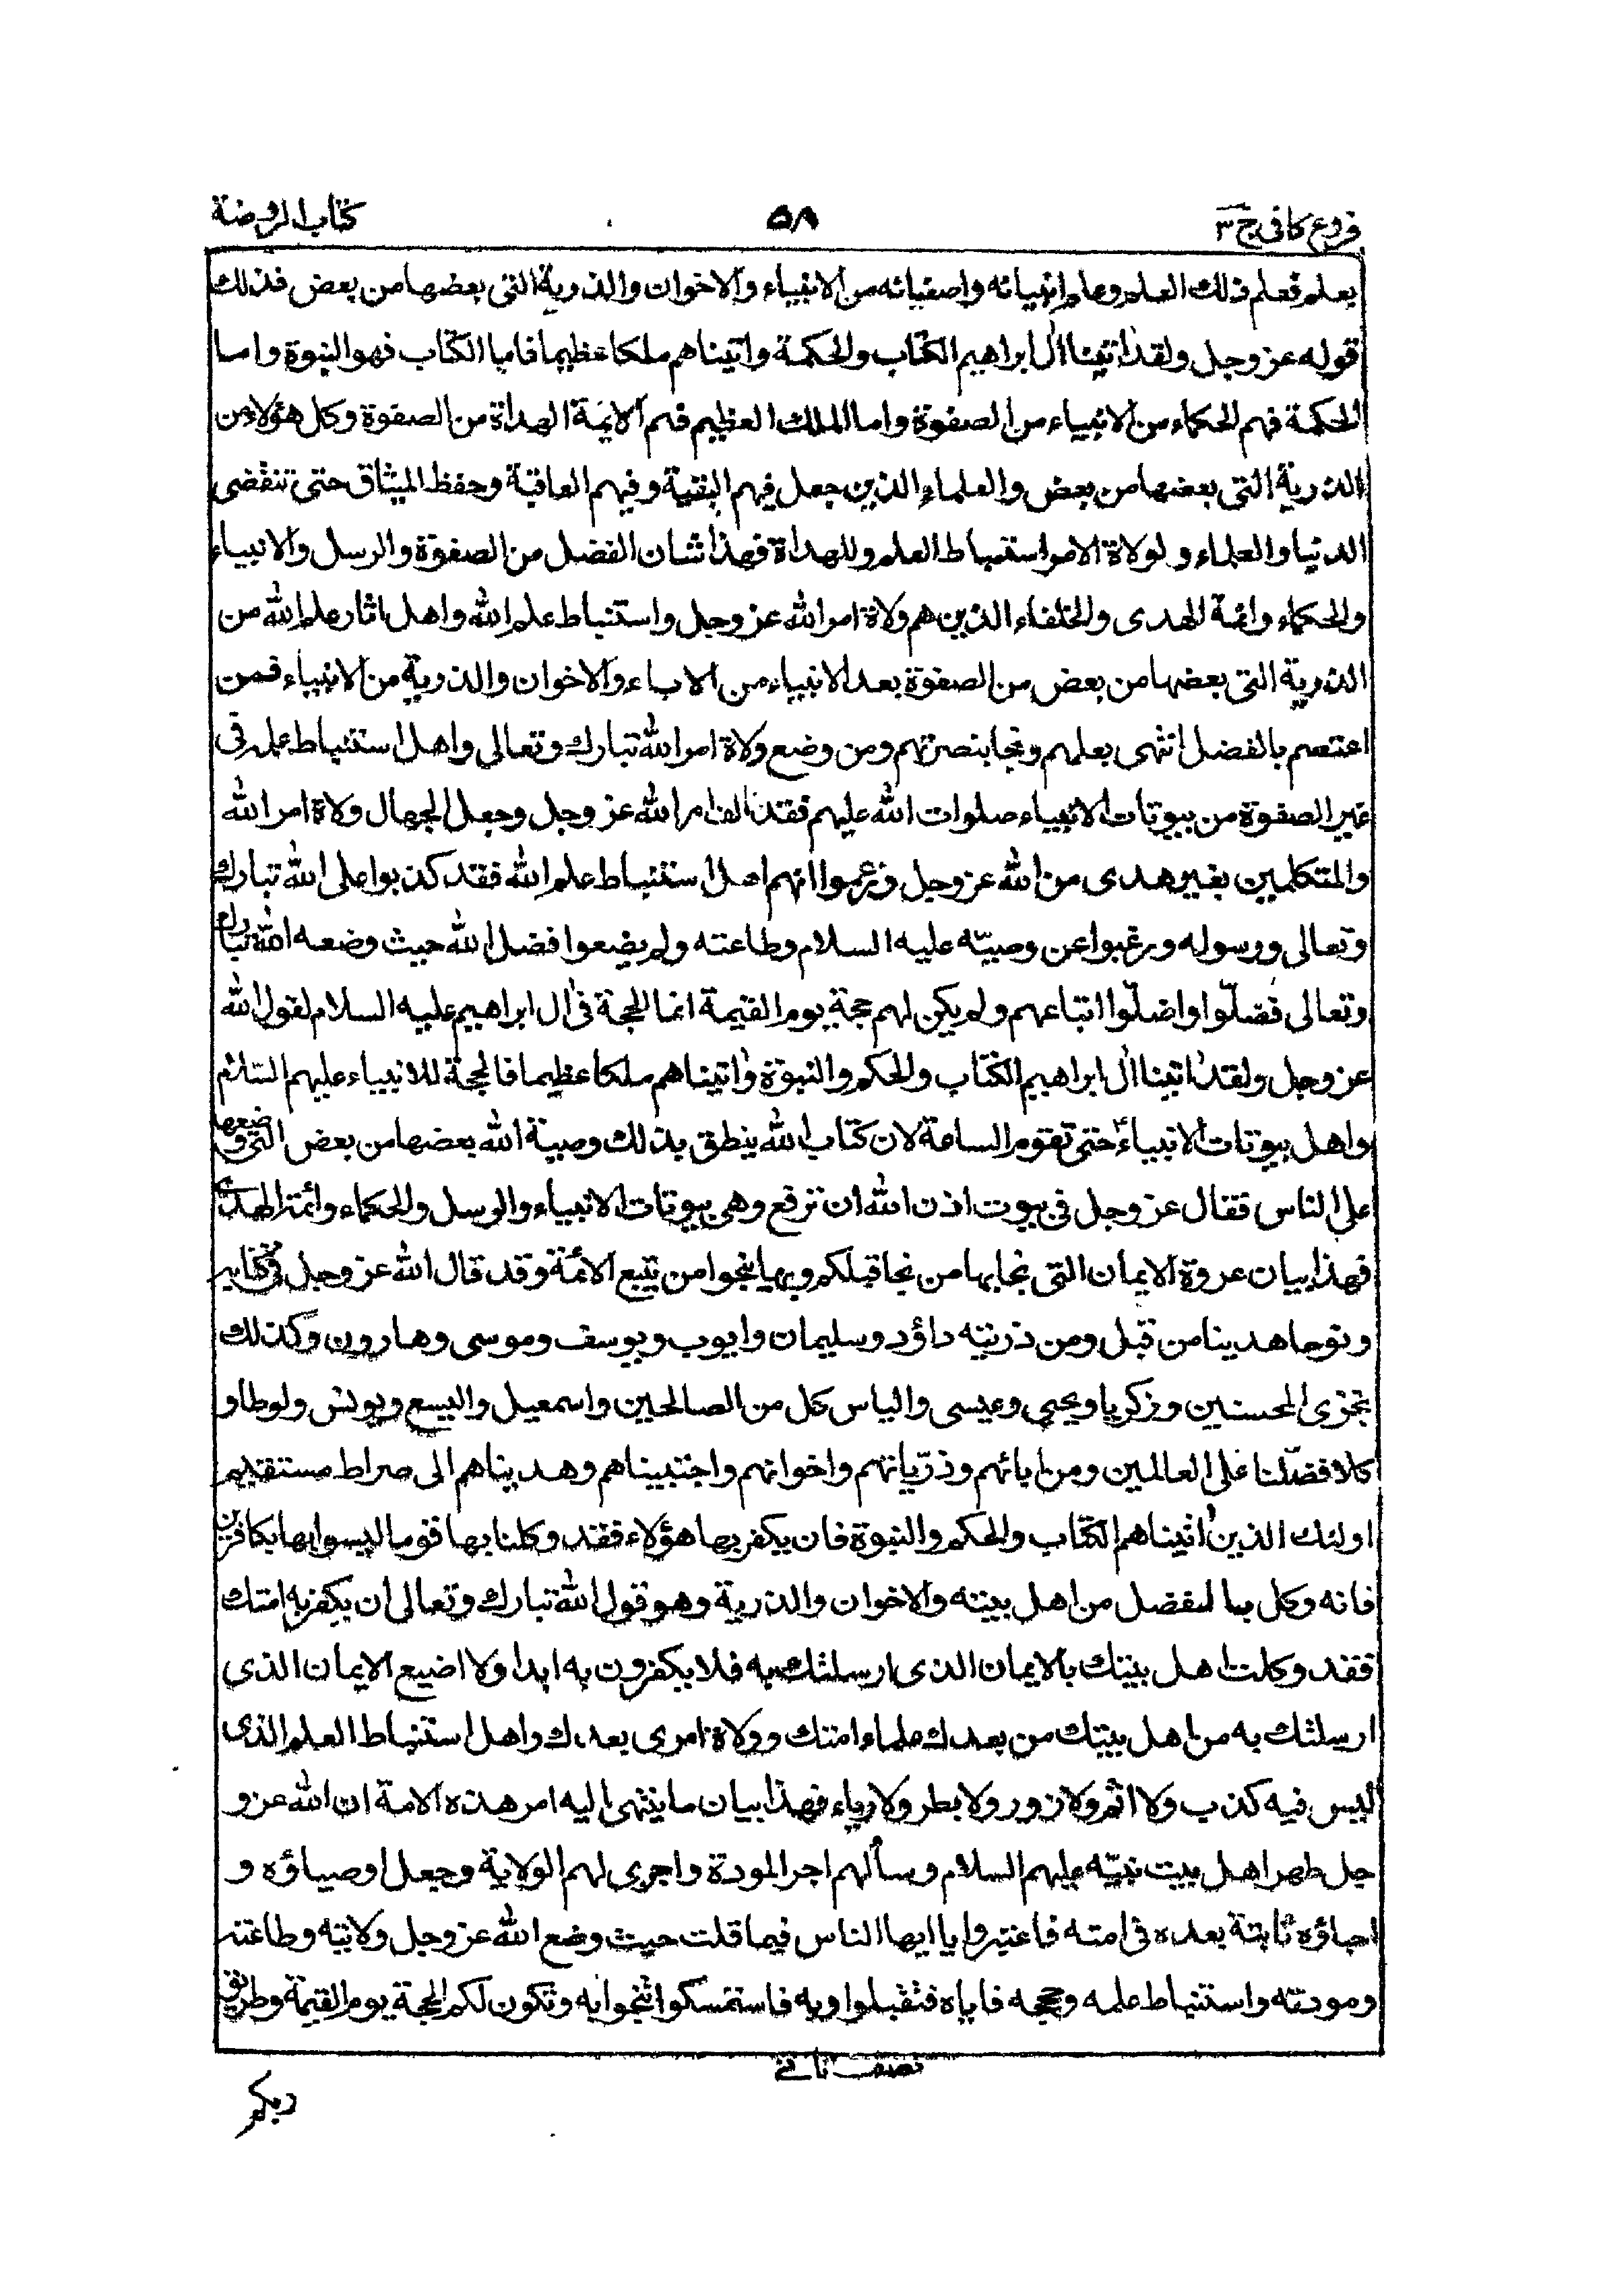 فروع كافى ج ٣
٥٨
كتاب الروضة
يعلم فعلم ذلك العلم وعلم انبيائه واصفيائه من الانبياء والاخوان والذرية التى بعضها من بعض فذلك
قوله عز وجل ولقد اتينا ال ابراهيم الكتاب والحكمة واتيناهم ملكا عظيما فاما الكتاب فهو النبوة واما
الحكمة فهم الحكماء من الانبياء من الصفوة واما الملك العظيم فهم الائمة الهداة من الصفوة وكل هؤلاء من
الذرية التى بعضها من بعض والعلماء الذين جعل فيهم البقية وفيهم العاقبة وحفظ الميثاق حتى تنقضى
الدنيا والعلماء ولولاة الامر استنباط العلم وللهداة فهذا شان الفضل من الصفوة والرسل والانبياء
والحكماء وائمة الهدى والخلفاء الذين هم ولاة امر الله عز وجل واستنباط علم الله واهل اثار علم الله من
الذرية التى بعضها من بعض من الصفوة بعد الانبياء من الاباء والاخوان والذرية من الانبياء فمن
اعتصم بالفضل انتهى بعلمهم ونجا بنصرتهم ومن وضع ولاة امر الله تبارك وتعالى واهل استنباط علمه فى
غير الصفوة من بيوتات الانبياء صلوات الله عليهم فقد خالف امر الله عز وجل وجعل الجهال ولاة امر الله
والمتكلمين بغير هدى من الله عز وجل وزعموا انهم اهل استنباط علم الله فقد كذبوا على الله تبارك
وتعالى ورسوله ورغبوا عن وصيّه عليه السلام وطاعته ولم يضعوا فضل الله حيث وضعه الله تبارك
وتعالى فضلّوا واضلّوا اتباعهم ولم يكن لهم حجة يوم القيمة انما الحجة فى ال ابراهيم عليه السلام لقول الله
عز وجل ولقد اتينا ال ابراهيم الكتاب والحكم والنبوة واتيناهم ملكا عظيما فالحجة للانبياء عليهم السّلام
واهل بيوتات الانبياء حتى تقوم الساعة لان كتاب الله ينطق بذلك وصية الله بعضها من بعض التى وضعها
على الناس فقال عز وجل فى بيوت اذن الله ان ترفع وهى بيوتات الانبياء والرسل والحكماء وائمة الهدى
فهذا بيان عروة الايمان التى نجا بها من نجا قبلكم وبها ينجوا من يتبع الائمة وقد قال الله عز وجل فى كتابه
ونوحا هدينا من قبل ومن ذريته داؤد وسليمان وايوب ويوسف وموسى وهارون وكذلك
نجزى المحسنين وزكريا ويحيى وعيسى والياس كل من الصالحين واسمعيل واليسع ويونس ولوطا و
كلا فضّلنا على العالمين ومن ابائهم وذرّياتهم واخوانهم واجتبيناهم وهديناهم الى صراط مستقيم
اولئك الذين اتيناهم الكتاب والحكم والنبوة فان يكفر بها هؤلاء فقد وكلنا بها قوما ليسوا بها بكافرين
فانه وكل بالفضل من اهل بيته والاخوان والذرية وهو قول الله تبارك وتعالى ان يكفر به امتك
فقد وكلت اهل بيتك بالايمان الذى ارسلتك به فلا يكفرون به ابدا ولا اضيع الايمان الذى
ارسلتك به من اهل بيتك من بعدك علماء امتك وولاة امرى بعدك واهل استنباط العلم الذى
ليس فيه كذب ولا اثم ولا زور ولا بطر ولا رياء فهذا بيان ما ينتهى اليه امر هذه الامة ان الله عز و
جل طهر اهل بيت نبيّه عليهم السلام وسألهم اجر المودة واجرى لهم الولاية وجعل اوصياؤه و
احباؤه ثابتة بعده فى امته فاعتبروا يا ايها الناس فيما قلت حيث وضع الله عز وجل ولايته وطاعته
ومودته واستنباط علمه وحججه فاياه فتقبلوا وبه فاستمسكوا تنجوا به وتكون لكم الحجة يوم القيمة وطريق
نصف ثانى